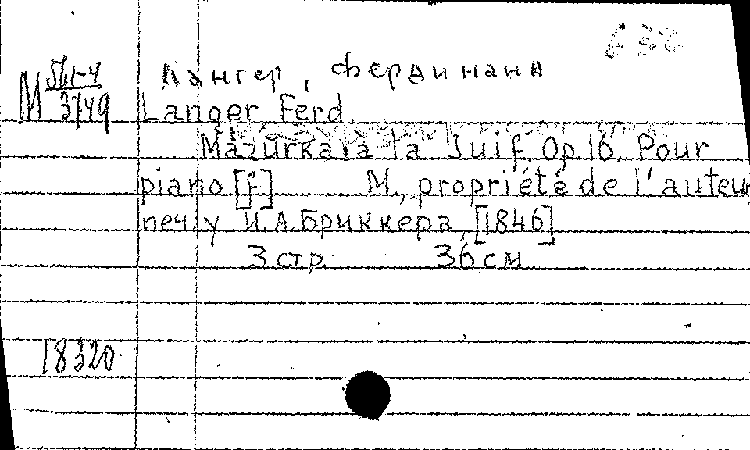 632
Лангер, Фердинанд
М 561-4/3749
Langer Ferd.
Mazurka à la Juif. Op 16. Pour
piano [f] М., propriété de l'auteur
печ. у И.А. Бриккера, [1846]
3 стр 36 см
18320